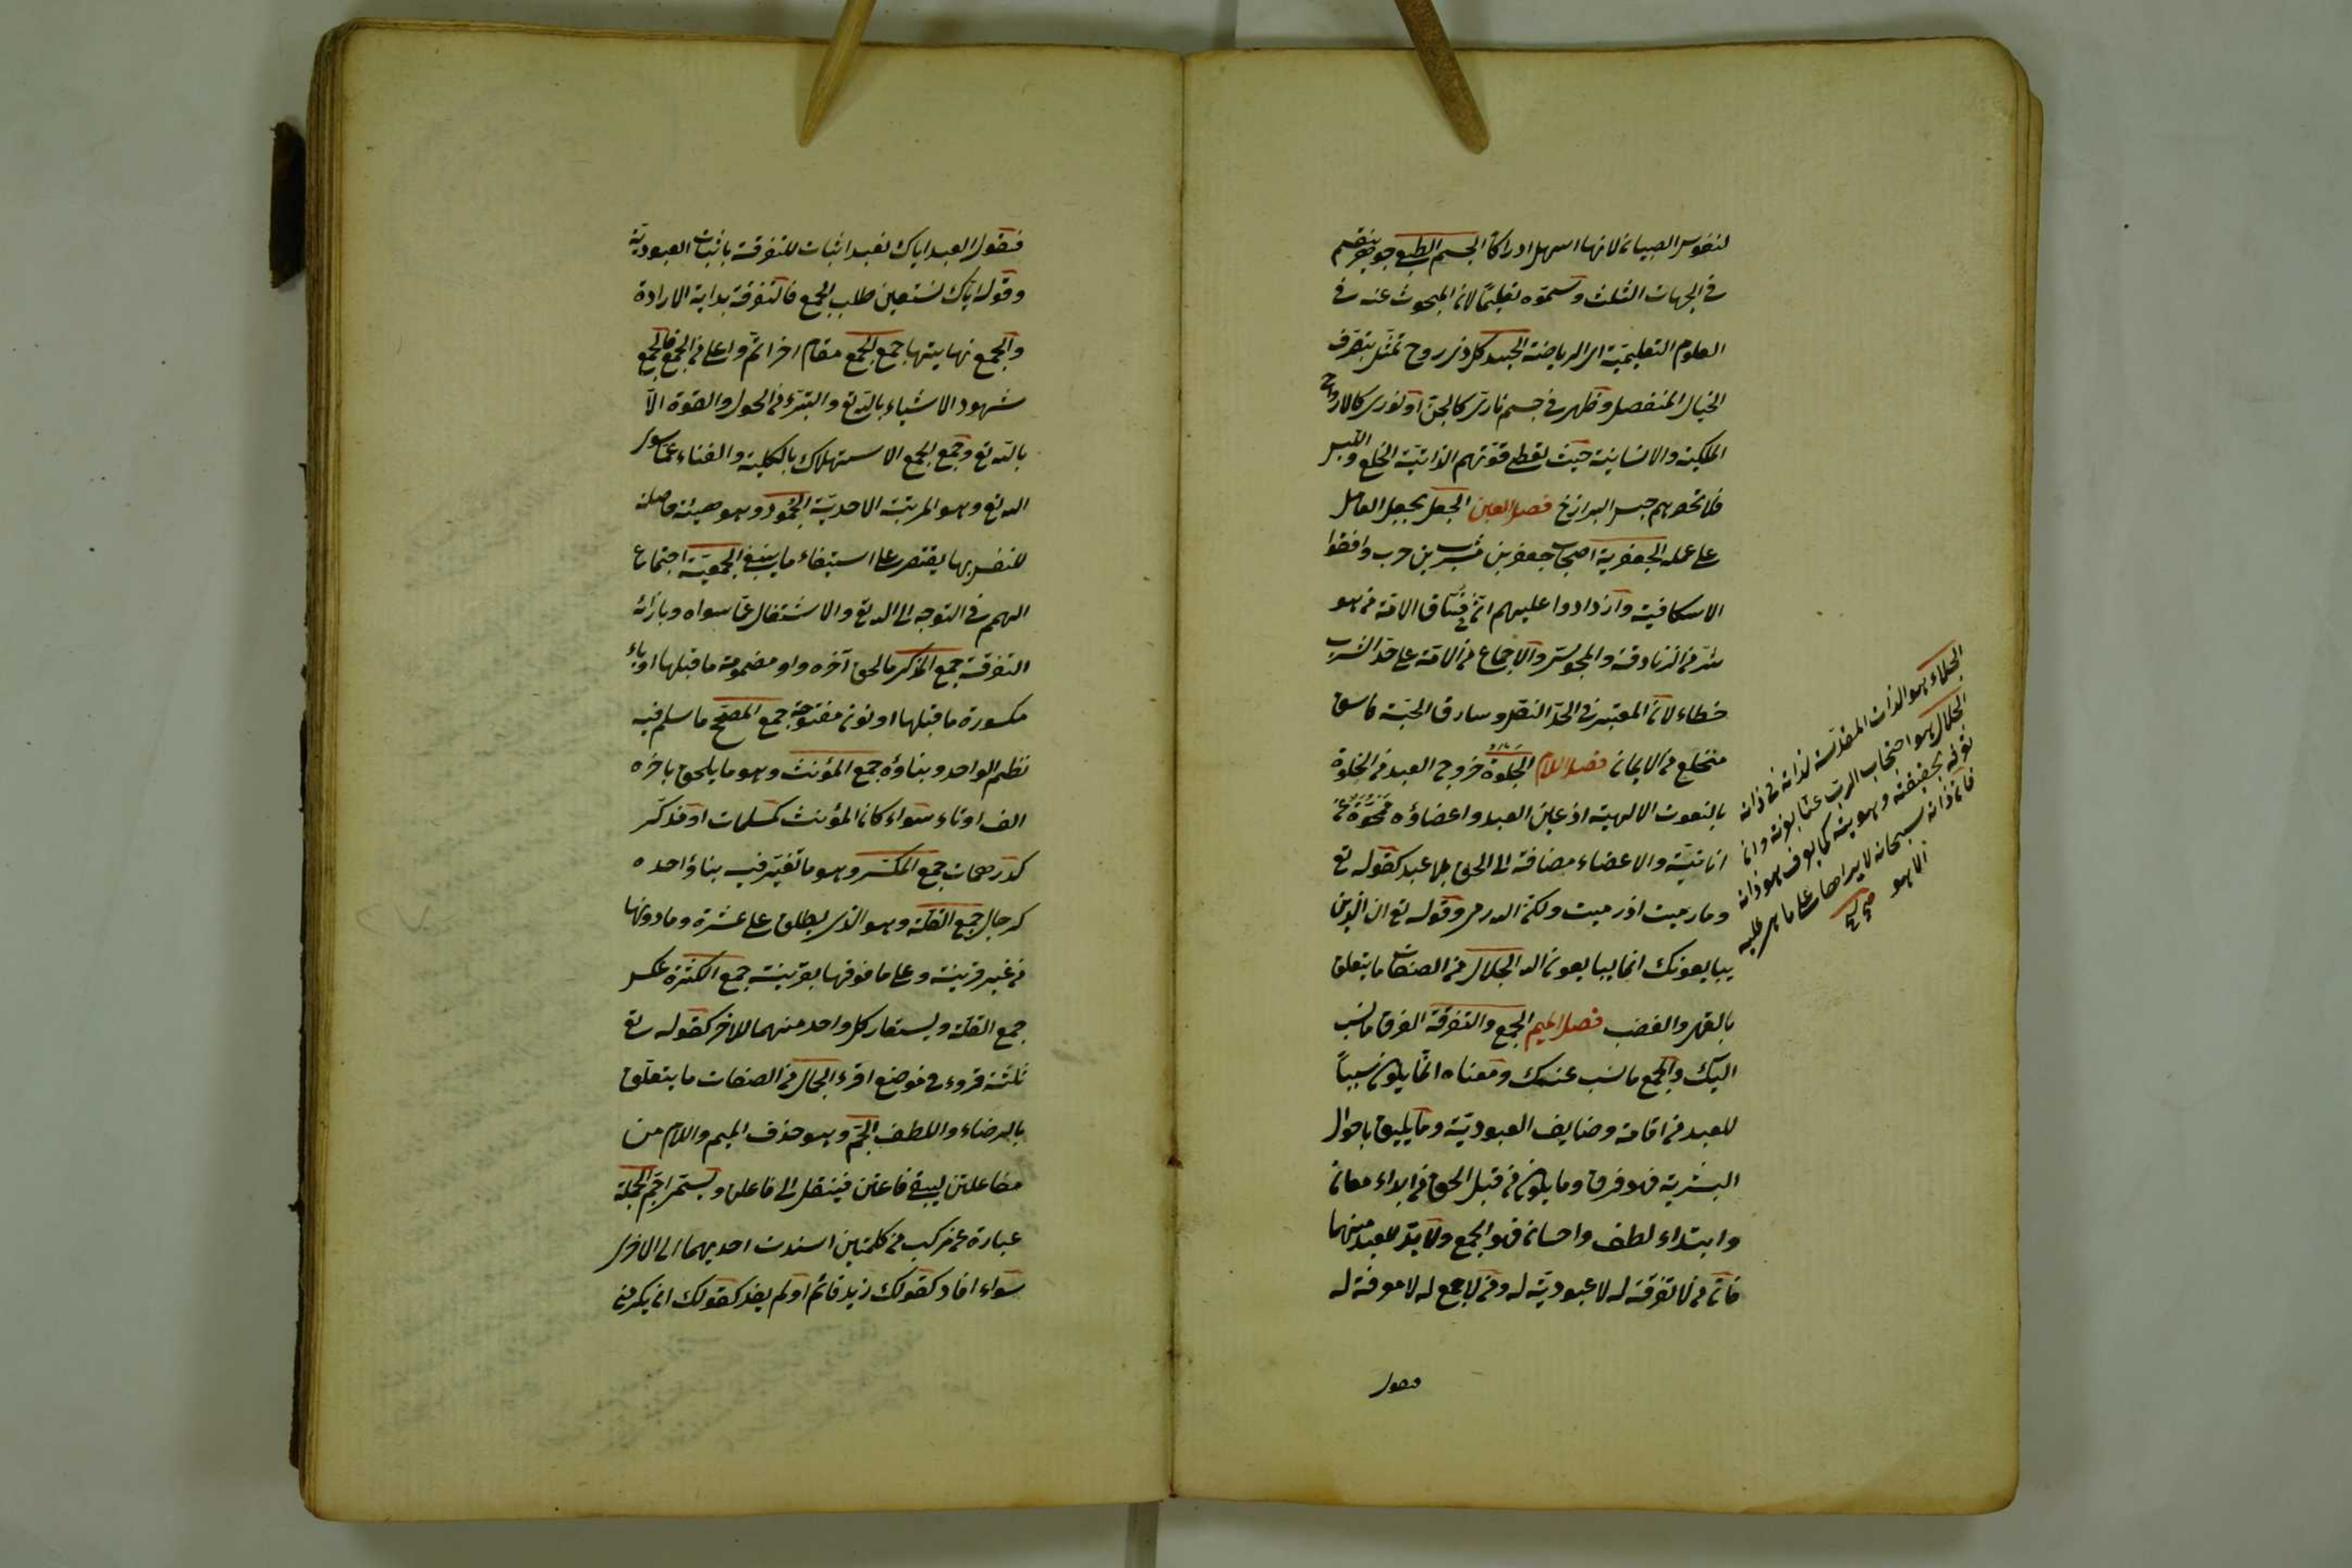 لنفوس الصبيان لانها اسهل ادراكا الجسم الطبيعى جوهر ينقسم
فى الجهات الثلث وتسموه تعليمًا لان المبحوث عنه فى
العلوم التعليمية اى الرياضية الجسد كل ذى روح تمثّل بتصرف
الخيال المنفصل وظهر فى جسم نارى كالجن او نورى كالارواح
الملكية والانسانية حيث يعطى قوّتهم الذاتية الخلع واللبس
فلا تحصرهم حبس البرازخ فصل العين الجعل يجعل العامل
على عمله الجعفرية اصحاب جعفر بن مبشر بن حرب وافقوا
الاسكافية وازدادوا عليهم انّ فى فسّاق الامة من هو
شرّ من الزنادقة والمجوس والاجماع من الامة على حدّ الشرب
خطاء لان المعتبر فى الحدّ النص وسارق الحبّة فاسق
منخلع من الايمان فصل اللام الجلوة خروج العبد من الخلوة
بالنعوت الالهية اذ عين العبد واعضاؤه ممحوّة عن
انانيّة والاعضاء مضافة الى الحق بلا عبد كقوله تع
وما رميت اذ رميت ولكن الله رمى وقوله تع ان الذين
يبايعونك انما يبايعون الله الجلال من الصفات ما يتعلق
بالقهر والغضب فصل الميم الجمع والتفرقة الفرق ما نسب
اليك والجمع ما نسب عنك ومعناه انّ ما يكون كسباً
للعبد من اقامة وضايف العبودية وما يليق باحوال
البشرية فهو فرق وما يكون من قبل الحق من ابداء معان
وابتداء لطف واحسان فهو الجمع ولا بدّ للعبد منهما
فانّ من لا تفرقة له لا عبوديّة له ومن لا جمع له لا معرفة له
فقول
الجلاء هو الذات المقدّسة لذاته فى ذاته
الجلال هو احتجاب الرب عنّا بعزته وان
نعرفه بحقيقته وهويته كما يعرف هو ذاته
فانّ ذاته سبحانه لا يراها احد على ما هى عليه
الا هو
فقول العبد اياك نعبد اثبات للتفرقة باثبات العبوديّة
وقوله اياك نستعين طلب الجمع فالتفرقة بداية الارادة
والجمع نهايتها جمع الجمع مقام اخر اتمّ واعلى من الجمع فالجمع
شهود الاشياء بالله تع والتبرّء من الحول والقوة الاّ
بالله تع وجمع الجمع الاستهلاك بالكلية والفناء عمّا سوى
الله تع وهو المرتبة الاحديّة الجمود وهو هيئة حاصلة
للنفس بها يقتصر على استيفاء ما ينبغى الجمعيّة اجتماع
الهمم فى التوجه الى الله تع والاشتغال عمّا سواه وبازائه
التفرقة جمع المذكر ما لحق آخره واو مضمومة ما قبلها او ياء
مكسورة ما قبلها او نون مفتوحة جمع المصحّح ما سلم فيه
نظم الواحد وبناؤه جمع المؤنث وهو ما يلحق باخره
الف وتاء سواء كان المؤنث كمسلمات او مذكّر
كدرهمات جمع المكسّر وهو ما تغيّر فيه بناؤ احده
كرجال جمع القلّة وهو الذى يطلق على عشرة وما دونها
من غير قرينة وعلى ما فوقها بقرينة جمع الكثرة عكس
جمع القلّة ويستعار كل واحد منهما للاخر كقوله تع
ثلثة قروء فى موضع اقرء الجمال من الصفات ما يتعلّق
بالرضاء واللطف الجمّ وهو حذف الميم واللام من
مفاعلتن ليبقى فاعتن فينقل الى فاعلن ويسمّى اجمّ الجملة
عبارة عن مركب من كلمتين اسندت احديهما الى الاخرى
سواء افاد كقولك زيد قائم او لم يفد كقولك ان يكرمنى